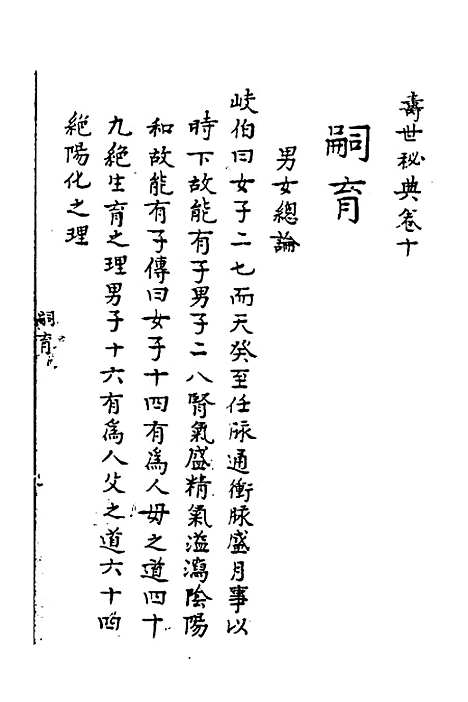 壽世秘典卷十
嗣育
男女總論
岐伯曰女子二七而天癸至任脉通衝脉盛月事以
時下故能有子男子二八腎氣盛精氣溢瀉陰陽
和故能有子傳曰女子十四有爲人毋之道四十
九絶生育之理男子十六有爲人父之道六十四
絶陽化之理
嗣育